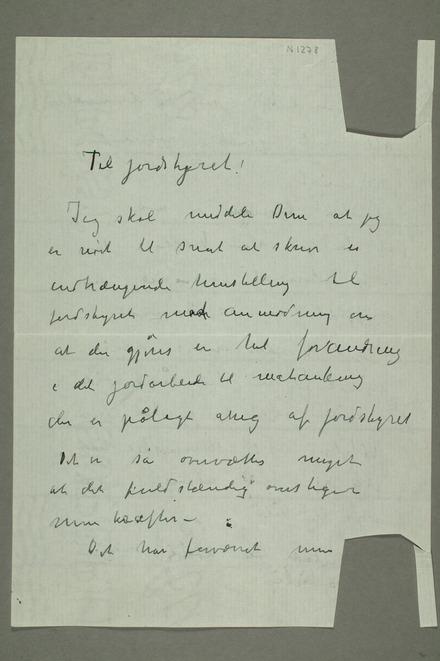 N 1278
Til jordstyret!
Jeg skal meddele Dem at jeg
er nød til snat at skrive en
indtrængende henstilling til
jordstyret med anmodning om
at der gjøres en hel forandring
i det jordarbeide til matauking
der er pålagt af jordstyret
Det er så overvættes meget
at det fuldstændig overstiger
mine kræfter –
Det har forværret min